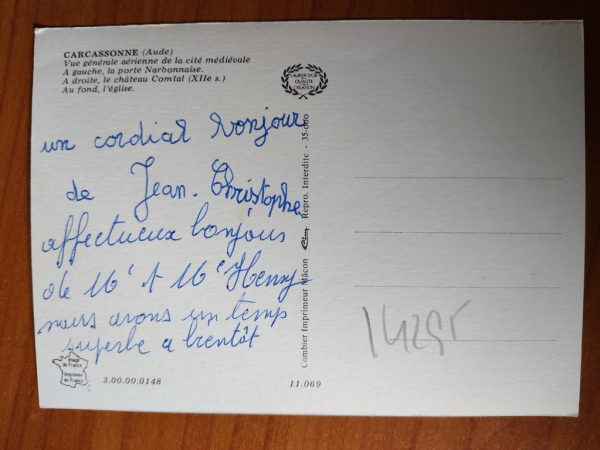 CARCASSONNE (Aude)
Vue générale aérienne de la cité médiévale
A gauche, la porte Narbonnaise.
A droite, le château Comtal (XIIe s.)
Au fond, l'église.
LAURIER D'OR
DE LA
QUALITÉ
CRÉATION
un cordial bonjour
de Jean-Christophe
affectueux bonjour
de Mr et Me Henry
nous avons un temps
superbe a bientôt
Image
de France
Imprimée
en France
3.00.00.0148
11.069
Combier Imprimeur Mâcon Cim Repro. Interdite - 35-